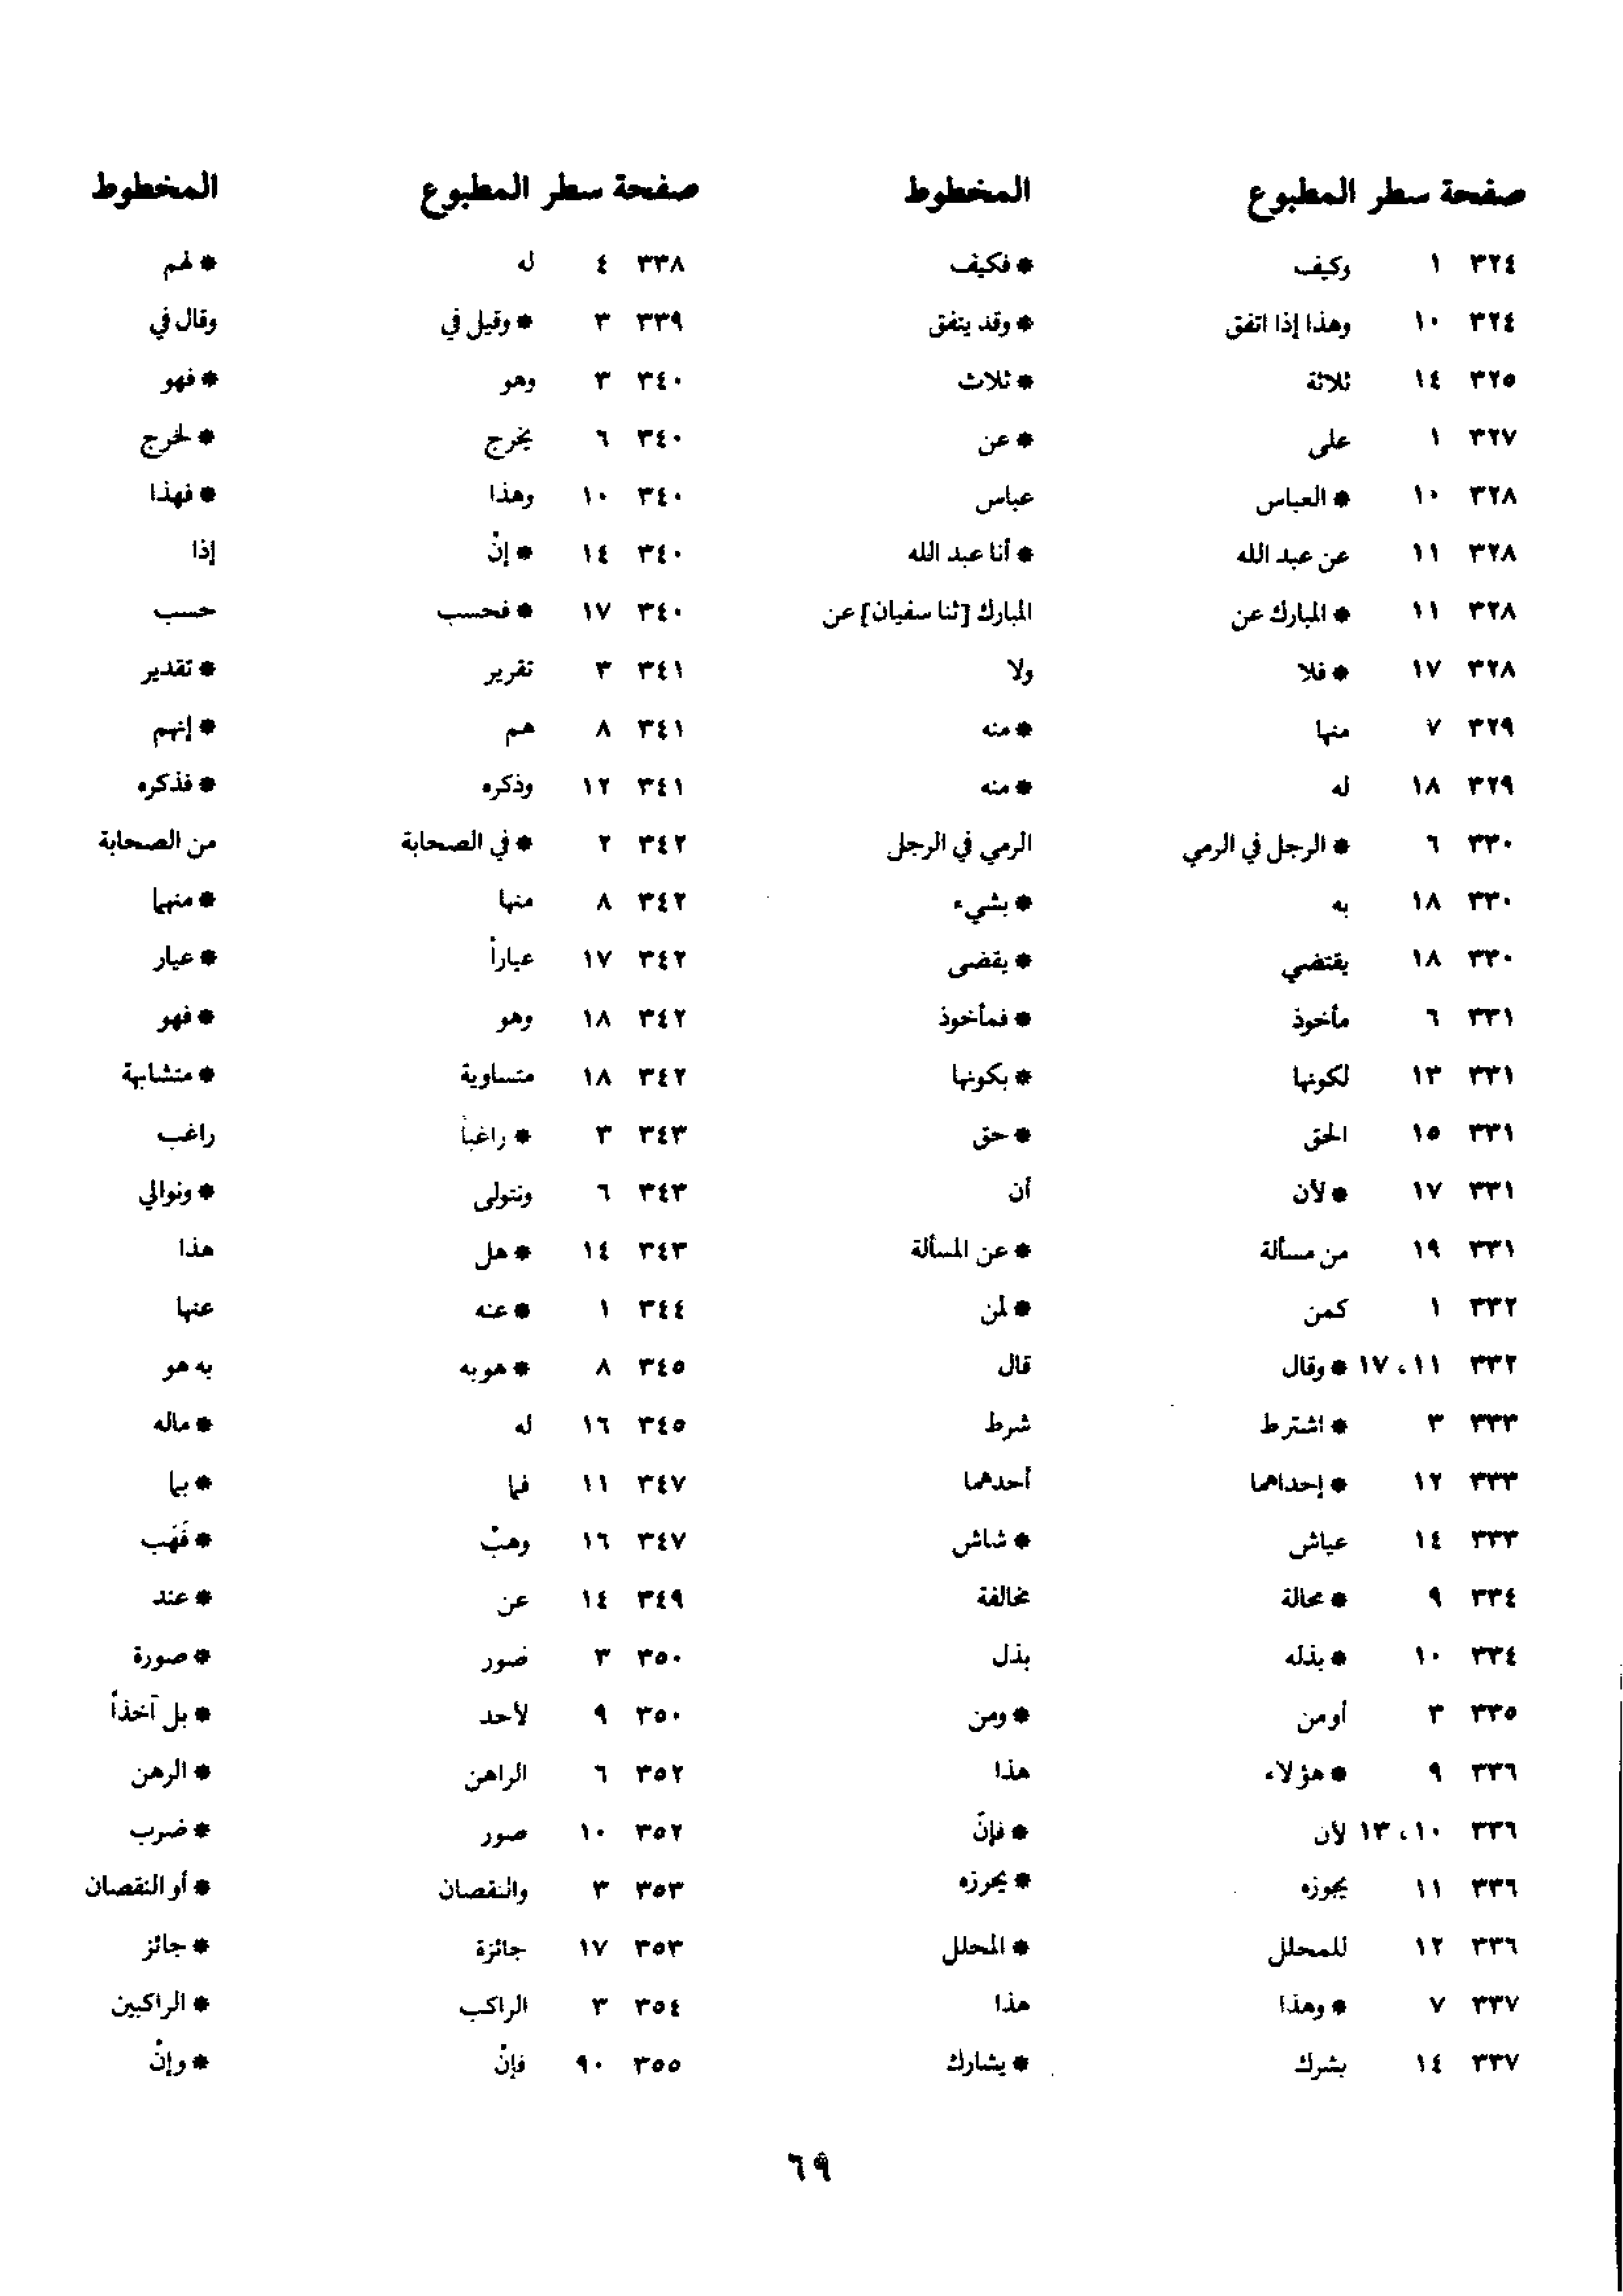 صفحة سطر المطبوع المخطوط
٣٢٤ ١ وكيف * فكيف
٣٢٤ ١٠ وهذا إذا اتفق * وقد يتفق
٣٢٥ ١٤ ثلاثة * ثلاث
٣٢٧ ١ على * عن
٣٢٨ ١٠ * العباس عباس
٣٢٨ ١١ عن عبد الله * أنا عبد الله
٣٢٨ ١١ * المبارك عن المبارك [ثنا سفيان] عن
٣٢٨ ١٧ * فلا ولا
٣٢٩ ٧ منها * منه
٣٢٩ ١٨ له * منه
٣٣٠ ٦ * الرجل في الرمي الرمي في الرجل
٣٣٠ ١٨ به * بشيء
٣٣٠ ١٨ يقتضي * يقضى
٣٣١ ٦ مأخوذ * فمأخوذ
٣٣١ ١٣ لكونها * بكونها
٣٣١ ١٥ الحق * حق
٣٣١ ١٧ * لأن أن
٣٣١ ١٩ من مسألة * عن المسألة
٣٣٢ ١ كمن * لمن
٣٣٢ ١١، ١٧ * وقال قال
٣٣٣ ٣ * اشترط شرط
٣٣٣ ١٢ * إحداهما أحدهما
٣٣٣ ١٤ عياش * شاش
٣٣٤ ٩ * محالة مخالفة
٣٣٤ ١٠ * بذله بذل
٣٣٥ ٣ أو من * ومن
٣٣٦ ٩ * هؤلاء هذا
٣٣٦ ١٠، ١٣ لأن * فإنّ
٣٣٦ ١١ يجوزه * يحرزه
٣٣٦ ١٢ للمحلل * المحلل
٣٣٧ ٧ * وهذا هذا
٣٣٧ ١٤ بشرك * يشارك
صفحة سطر المطبوع المخطوط
٣٣٨ ٤ له * لهم
٣٣٩ ٣ * وقيل في وقال في
٣٤٠ ٣ وهو * فهو
٣٤٠ ٦ يخرج * لخرج
٣٤٠ ١٠ وهذا * فهذا
٣٤٠ ١٤ * إنْ إذا
٣٤٠ ١٧ * فحسب حسب
٣٤١ ٣ تقرير * تقدير
٣٤١ ٨ هم * إنهم
٣٤١ ١٢ وذكره * فذكره
٣٤٢ ٢ * في الصحابة من الصحابة
٣٤٢ ٨ منها * منهما
٣٤٢ ١٧ عياراً * عيار
٣٤٢ ١٨ وهو * فهو
٣٤٢ ١٨ متساوية * متشابهة
٣٤٣ ٣ * راغباً راغب
٣٤٣ ٦ ونتولى * ونوالي
٣٤٣ ١٤ * هل هذا
٣٤٤ ١ * عنه عنها
٣٤٥ ٨ * هو به به هو
٣٤٥ ١٦ له * ماله
٣٤٧ ١١ فما * بما
٣٤٧ ١٦ وهبْ * فَهَب
٣٤٩ ١٤ عن * عند
٣٥٠ ٣ ضور * صورة
٣٥٠ ٩ لأحد * بل آخذاً
٣٥٢ ٦ الراهن * الرهن
٣٥٢ ١٠ صور * ضرب
٣٥٣ ٣ والنقصان * أو النقصان
٣٥٣ ١٧ جائزة * جائز
٣٥٤ ٣ الراكب * الراكبين
٣٥٥ ٩٠ فإنْ * وإنْ
٦٩